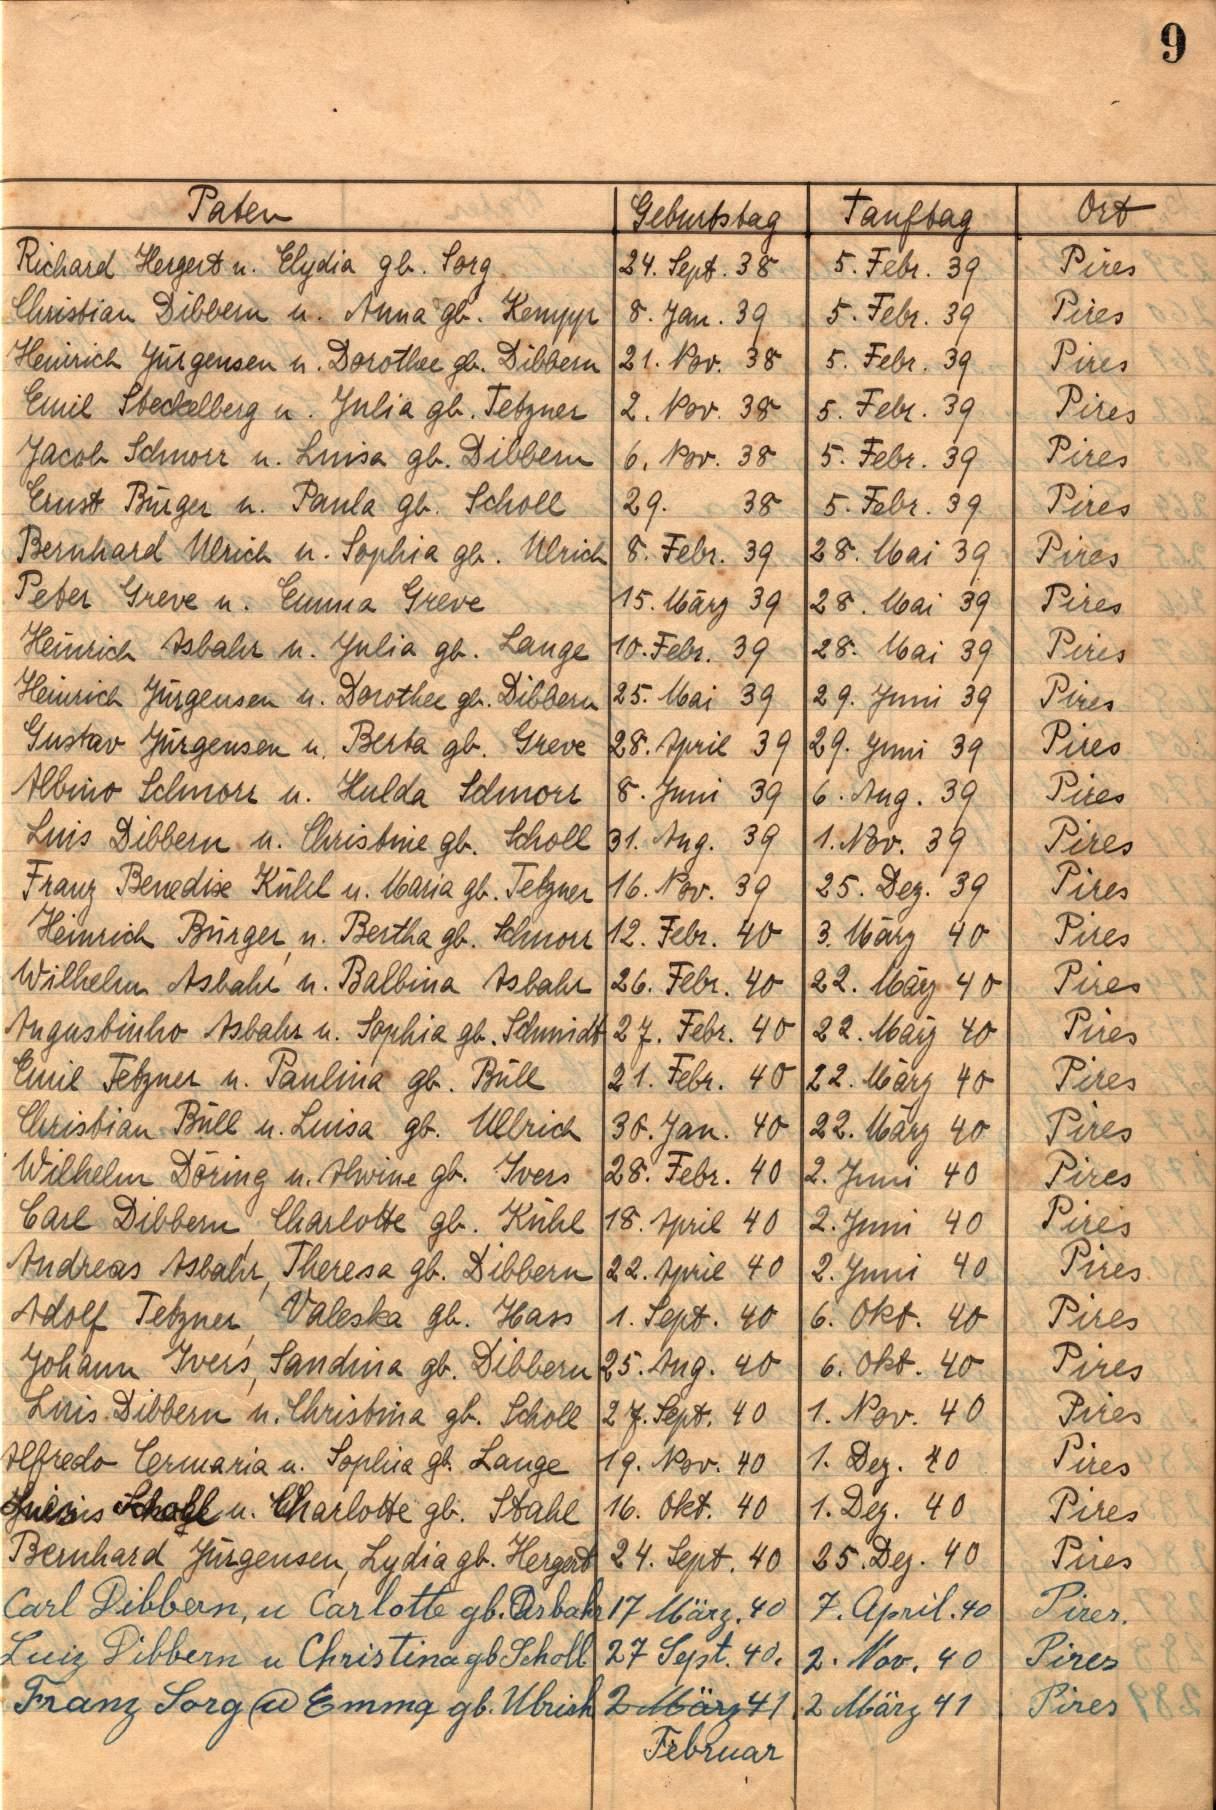 9
Paten Geburtstag Tauftag Ort
Richard Hergert u. Elydia gb. Sorg 24. Sept. 38 5. Febr. 39 Pires
Christian Dibbern u. Anna gb. Kempp 8. Jan. 39 5. Febr. 39 Pires
Heinrich Jürgensen u. Dorothee gb. Dibbern 21. Nov. 38 5. Febr. 39 Pires
Emil Steckelberg u. Julia gb. Tetzner 2. Nov. 38 5. Febr. 39 Pires
Jacob Schnorr u. Luisa gb. Dibbern 6. Nov. 38 5. Febr. 39 Pires
Ernst Bürger u. Paula gb. Scholl 29. 38 5. Febr. 39 Pires
Bernhard Ulrich u. Sophia gb. Ulrich 8. Febr. 39 28. Mai 39 Pires
Peter Greve u. Emma Greve 15. März 39 28. Mai 39 Pires
Heinrich Asbahr u. Julia gb. Lange 10. Febr. 39 28. Mai 39 Pires
Heinrich Jürgensen u. Dorothee gb. Dibbern 25. Mai 39 29. Juni 39 Pires
Gustav Jürgensen u. Berta gb. Greve 28. April 39 29. Juni 39 Pires
Albino Schnorr u. Hulda Schnorr 8. Juni 39 6. Aug. 39 Pires
Luis Dibbern u. Christine gb. Scholl 31. Aug. 39 1. Nov. 39 Pires
Franz Benedix Kühl u. Maria gb. Tetzner 16. Nov. 39 25. Dez. 39 Pires
Heinrich Bürger u. Bertha gb. Schnorr 12. Febr. 40 3. März 40 Pires
Wilhelm Asbahr u. Balbina Asbahr 26. Febr. 40 22. März 40 Pires
Augustinho Asbahr u. Sophia gb. Schmidt 27. Febr. 40 22. März 40 Pires
Emil Tetzner u. Paulina gb. Büll 21. Febr. 40 22. März 40 Pires
Christian Büll u. Luisa gb. Ullrich 30. Jan. 40 22. März 40 Pires
Wilhelm Döring u. Alwine gb. Ivers 28. Febr. 40 2. Juni 40 Pires
Carl Dibbern, Charlotte gb. Kühl 18. April 40 2. Juni 40 Pires
Andreas Asbahr, Theresa gb. Dibbern 22. April 40 2. Juni 40 Pires
Adolf Tetzner, Valeska gb. Hass 1. Sept. 40 6. Okt. 40 Pires
Johann Ivers, Sandina gb. Dibbern 25. Aug. 40 6. Okt. 40 Pires
Luis Dibbern u. Christina gb. Scholl 27. Sept. 40 1. Nov. 40 Pires
Alfredo Cermaria u. Sophia gb. Lange 19. Nov. 40 1. Dez. 40 Pires
u. Charlotte gb. Stahl 16. Okt. 40 1. Dez. 40 Pires
Bernhard Jürgensen, Lydia gb. Hergert 24. Sept. 40 25. Dez. 40 Pires
Carl Dibbern, u Carlotte gb. Asbahr 17 März. 40 7. April. 40 Pires.
Luiz Dibbern u Christina gb Scholl 27 Sept. 40. 2. Nov. 40 Pires
Franz Sorg u Emma gb. Ulrich 2 März 41 2 März 41 Pires
Februar